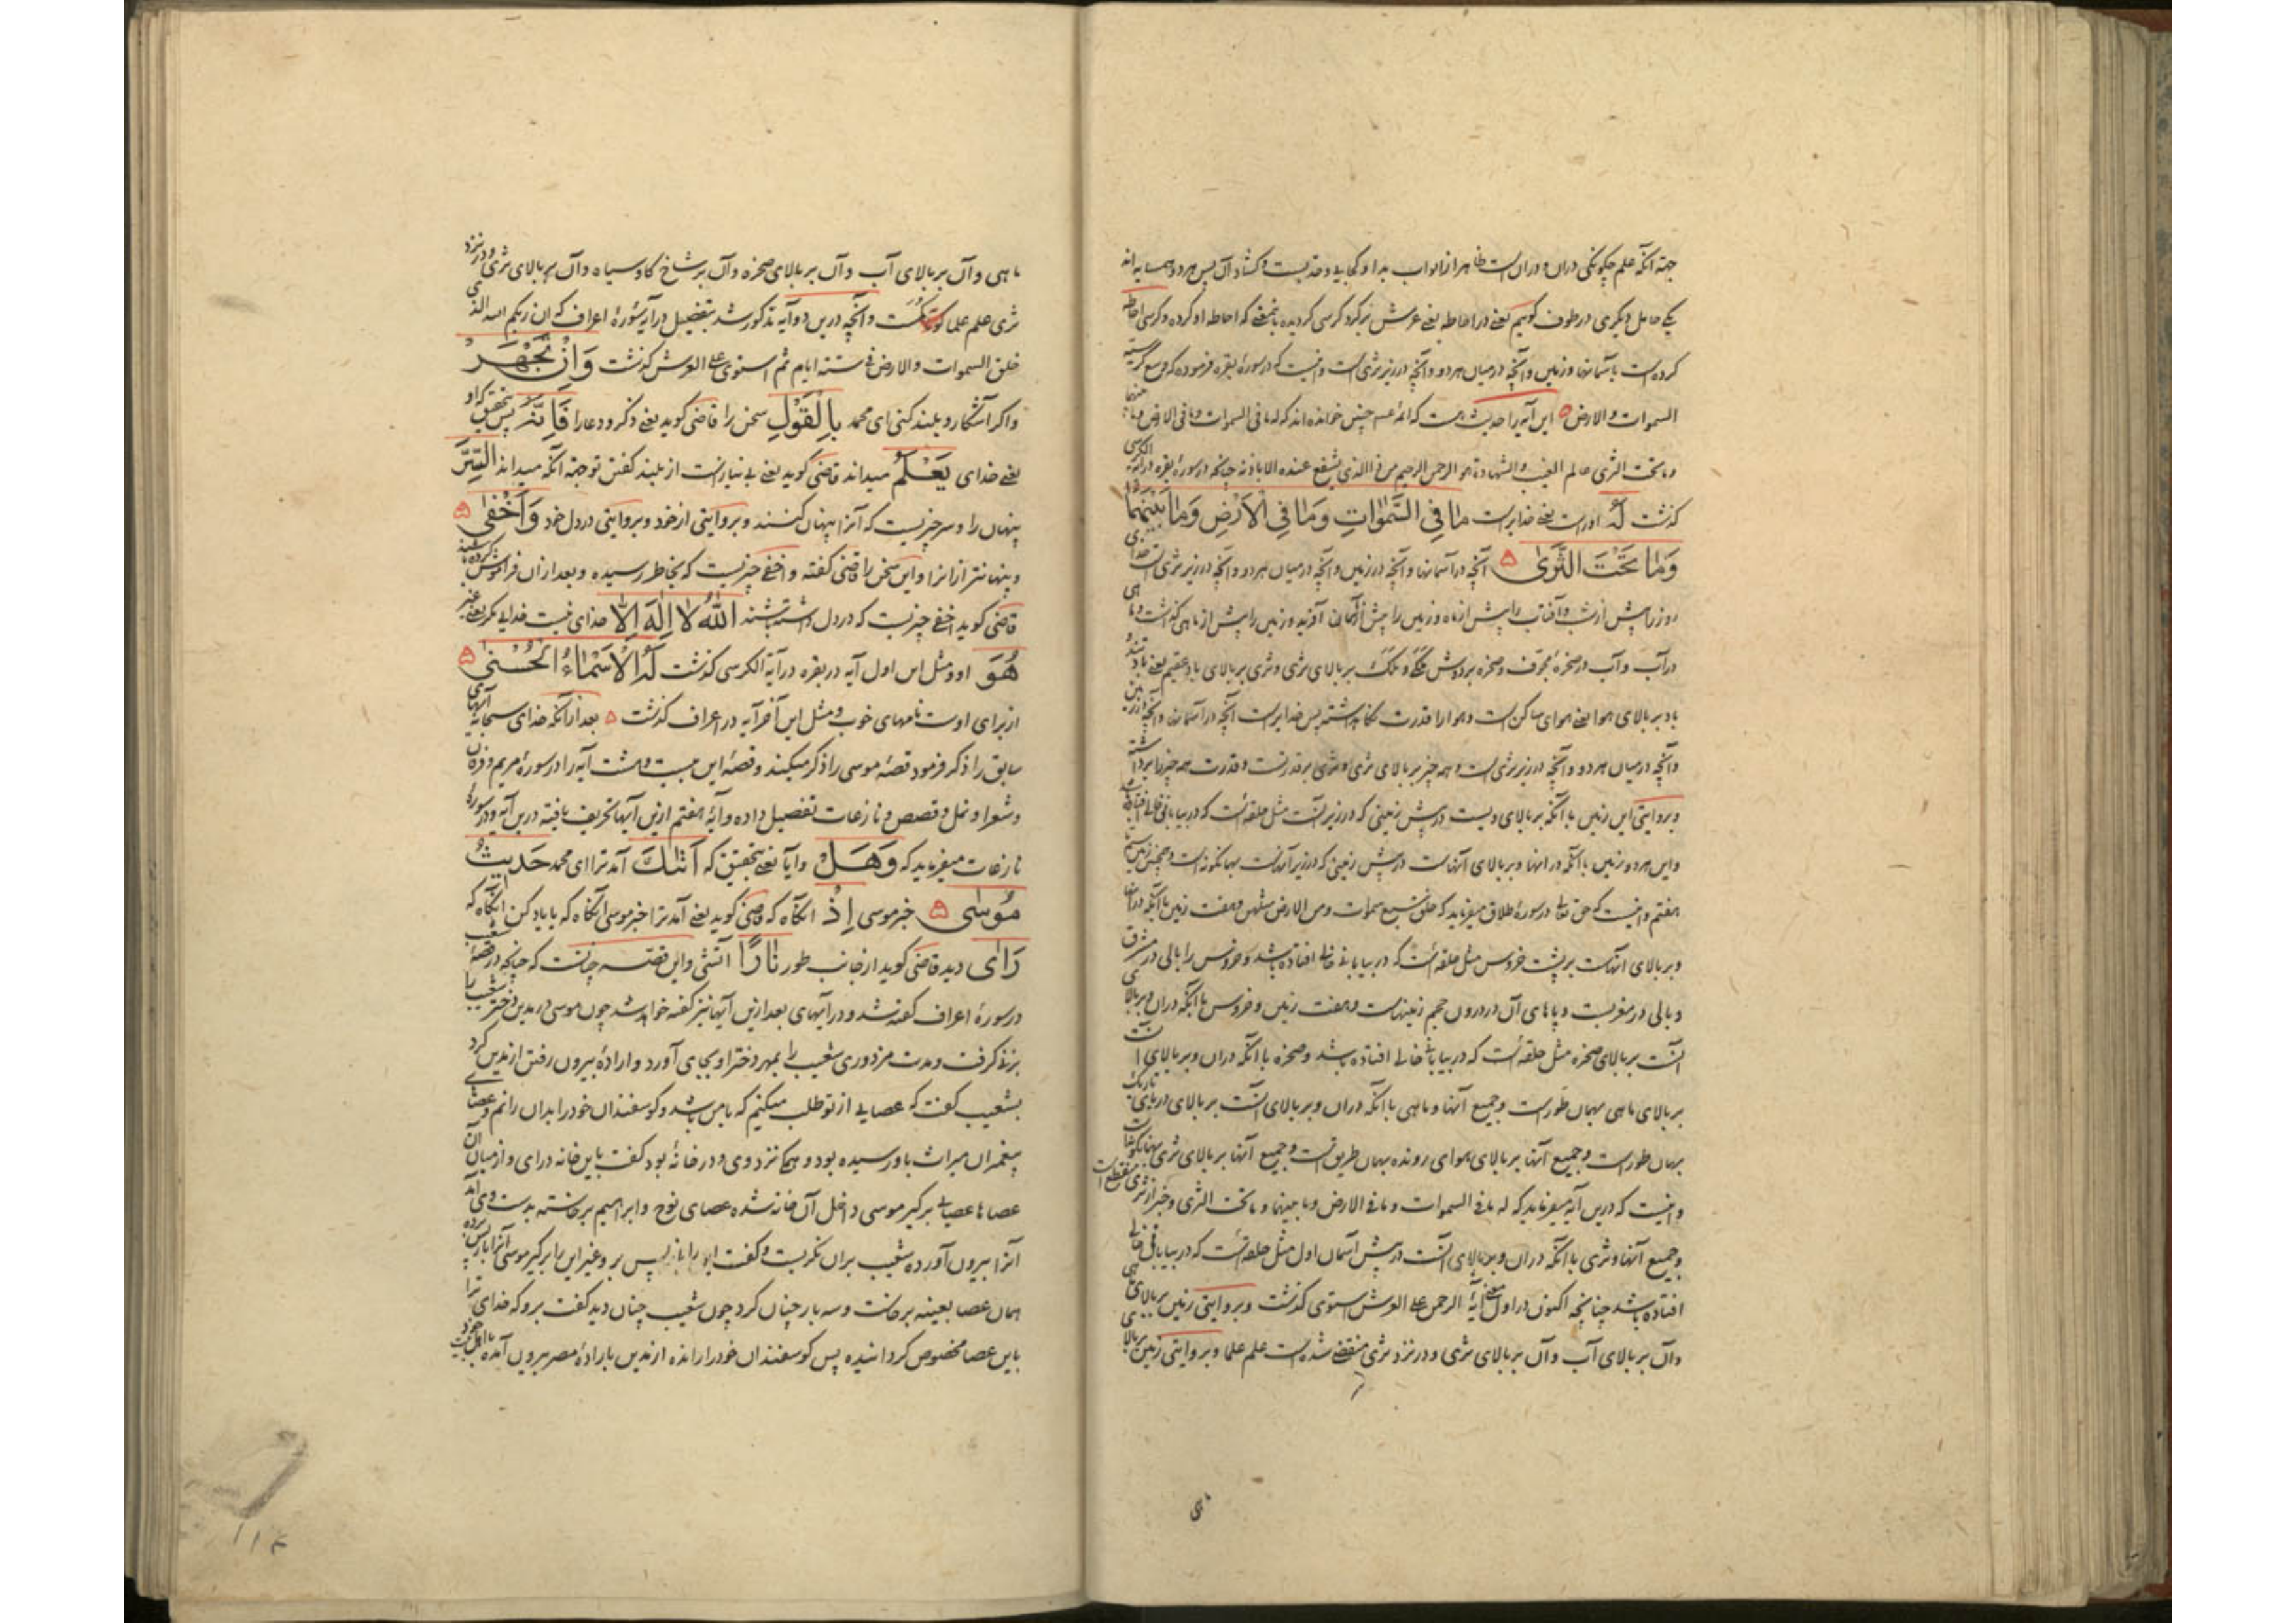 جهة آنکه علم چگونگی دران و دران است ظاهر از ابواب بدا و کجایی و حد نیست و کشاد آن پس هر دو همسایه اند
یکی حامل دیگری در طوف گوییم یعنی در احاطه یعنی عرش گرد کرسی گردیده بمعنی که احاطه او کرده و کرسی احاطه
کرده است بآسمانها و زمین و آنچه درمیان هر دو و آنچه در زیر ثری است و اینست که در سورهٔ بقره فرموده که وسع کرسیه
السموات والارض این آیه را خوانده اند که له ما فی السموات وما فی الارض وما بینهما
وما تحت الثری عالم الغیب والشهادة هو الرحمن الرحیم من ذا الذی یشفع عنده الا باذنه چنانچه در سورهٔ بقره در آیة الکرسی
گذشت لَهُ اوراست یعنی خدایراست مَا فِی السَّمٰوَاتِ وَمَا فِی الْاَرْضِ وَمَا بَیْنَهُمَا
وَمَا تَحْتَ الثَّرٰی آنچه در آسمانها و آنچه در زمین و آنچه درمیان هر دو و آنچه در زیر ثری است خدای
روز را پیش از شب و آفتاب را پیش از ماه و زمین را پیش از آسمان آفرید و زمین را پیش از ماهی گذشت و ماهی
در آب و آب در صخرهٔ مجوف و صخره بر دوش ملکی و ملک بر بالای ثری و ثری بر بالای باد عقیم یعنی باد تند و
باد بر بالای هوا یعنی هوای ساکن است و هوا را قدرت نگاه داشته پس خدایراست آنچه در آسمان و آنچه در زمین
و آنچه درمیان هر دو و آنچه در زیر ثری است و همه چیز بر بالای ثری و ثری بر قدرتست و قدرت همه چیز را برداشته
و بروایتی این زمین با آنکه بر بالای ویست در پیش زمینی که در زیر آنست مثل حلقه است که در بیابانی خالی افتاده باشد
و این هر دو زمین با آنکه در آنها و بر بالای آنهاست در پیش زمینی که در زیر آنهاست بهمانگونه است و همچنین زمین سیم تا
هفتم و اینست که حق تعالی در سورهٔ طلاق میفرماید که خلق سبع سموات ومن الارض مثلهن و هفت زمین با آنکه دران
و بر بالای آنهاست بر پشت خروس مثل حلقه است که در بیابانی خالی افتاده باشد و خروس را بالی در مشرق
و بالی در مغربست و پاهای آن در درون حجم زمینهاست و هفت زمین و خروس با آنکه دران و بر بالای
آنست بر بالای صخره مثل حلقه است که در بیابانی خالی افتاده باشد و صخره با آنکه دران و بر بالای آنست
بر بالای ماهی بهمان طور است و جمیع آنها و ماهی با آنکه دران و بر بالای آنست بر بالای دریای تاریک
بهمان طور است و جمیع آنها بر بالای هوای رونده بهمان طریق است و جمیع آنها بر بالای ثری بهمانگونه است
و اینست که درین آیه میفرماید که له ما فی السموات وما فی الارض وما بینهما وما تحت الثری و خبر از ثری منقطع است
و جمیع آنها و ثری با آنکه دران و بر بالای آنست در پیش آسمان اول مثل حلقه است که در بیابانی خالی
افتاده باشد چنانچه اکنون در اول آیهٔ الرحمن علی العرش استوی گذشت و بروایتی زمین بر بالای ماهی
و آن بر بالای آب و آن بر بالای ثری و در نزد ثری منقضی شده است علم علما و بروایتی زمین بر بالای
ماهی
ماهی و آن بر بالای آب و آن بر بالای صخره و آن بر شاخ گاو سیاه و آن بر بالای ثری و در نزد
ثری علم علما کوتاهست و آنچه درین دو آیه مذکور شد بتفصیل در آیهٔ سورهٔ اعراف که ان ربکم الله الذی
خلق السموات والارض فی ستة ایام ثم استوی علی العرش گذشت وَاِنْ تَجْهَرْ
و اگر آشکار و بلند کنی ای محمد بِالْقَوْلِ سخن را قاضی گوید یعنی ذکر و دعا را فَاِنَّهُ پس بتحقیق که او
یعنی خدای یَعْلَمُ میداند قاضی گوید یعنی بی نیازست از بلند گفتن تو جهة آنکه میداند السِّرَّ
پنهان را و سر چیزیست که آنرا پنهان کنند و بروایتی از خود و بروایتی در دل خود وَاَخْفٰی
و پنهانتر از آنرا و این سخن را قاضی گفته و اخفی چیزیست که بخاطر رسیده و بعد ازان فراموش کرده باشند
قاضی گوید اخفی چیزیست که در دل داشته باشند اَللّٰهُ لَا اِلٰهَ اِلَّا خدای نیست خدایی مگر یعنی غیر
هُوَ او و مثل این اول آیه در بقره در آیة الکرسی گذشت لَهُ الْاَسْمَاءُ الْحُسْنٰی
از برای اوست نامهای خوب و مثل این آخر آیه در اعراف گذشت بعد از آنکه خدای سبحانه آیهای
سابق را ذکر فرمود قصهٔ موسی را ذکر میکند و قصهٔ این بیست و هشت آیه را در سورهٔ مریم و فرقان
و شعرا و نمل و قصص و نازعات تفصیل داده و آیهٔ هفتم ازین آیها تحریف یافته درین آیه و در سورهٔ
نازعات میفرماید که وَهَلْ و آیا یعنی بتحقیق که اَتٰیكَ آمد ترا ای محمد حَدِیثُ
مُوسٰی خبر موسی اِذْ آنگاه که قاضی گوید یعنی آمد ترا خبر موسی آنگاه که یا یاد کن آنگاه که
رَاٰی دید قاضی گوید از جانب طور نَارًا آتشی و این قصه چنانست که چنانچه در قصهٔ شعیب
در سورهٔ اعراف گفته شد و در آیهای بعد ازین آیها نیز گفته خواهد شد چون موسی در مدین دختر شعیب را
بزنی گرفت و مدت مزدوری شعیب را بمهر دختر او بجای آورد و ارادهٔ بیرون رفتن از مدین کرد
بشعیب گفت که عصایی از تو طلب میکنم که با من باشد و گوسفندان خود را بدان رانم و عصای
پیغمبران میراث باو رسیده بود و همگی نزد وی و در خانهٔ بود گفت باین خانه درای و از میان آن
عصاها عصایی برگیر موسی داخل آن خانه شده عصای نوح و ابراهیم برخاسته بدست وی آمد
آنرا بیرون آورده شعیب بران نگریست و گفت این را باز پس بر و غیر این را برگیر موسی آنرا باز پس برده
همان عصا بعینه برخاست و سه بار چنان کرد چون شعیب چنان دید گفت برو که خدای ترا
باین عصا مخصوص گردانیده پس گوسفندان خود را رانده از مدین بارادهٔ مصر بیرون آمده با اهل بیت خود